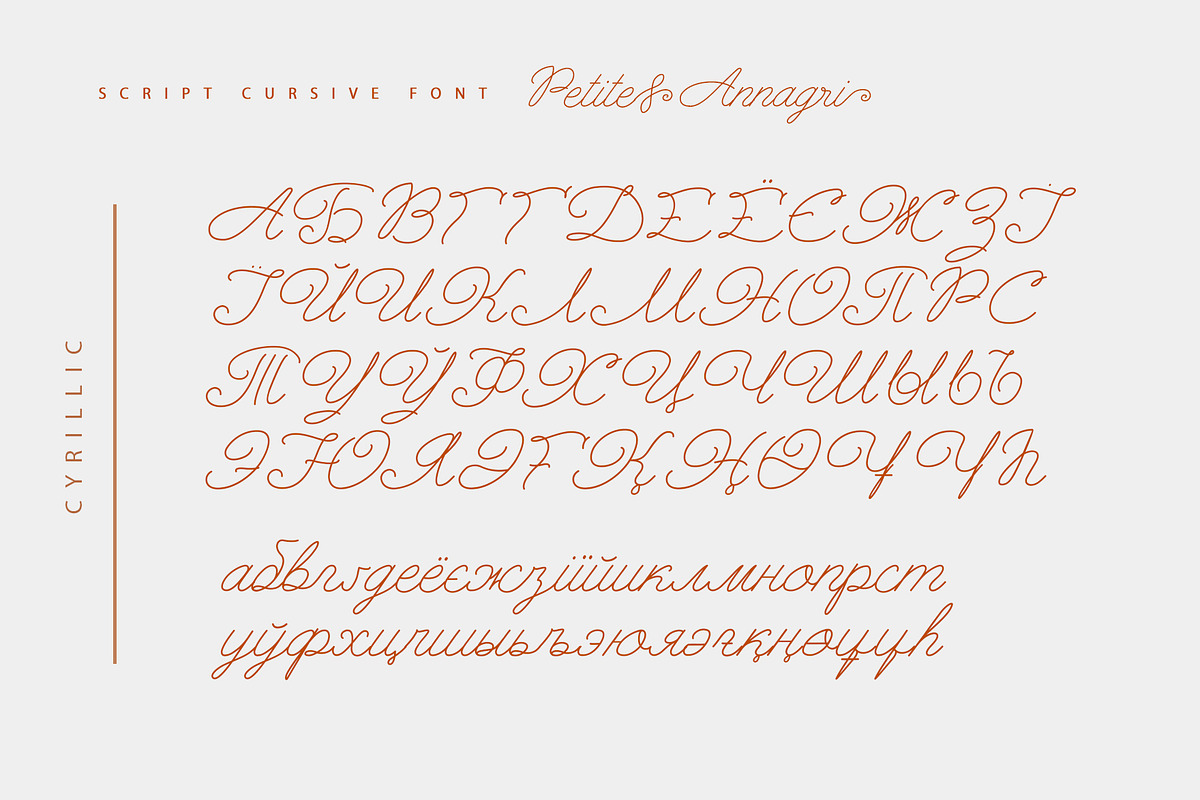 SCRIPT CURSIVE FONT Petite & Annagri
CYRILLIC
АБВГҐДЕЁЄЖЗІ
ЇЙИКЛМНОПРС
ТУЎФХЦЧШЫЬЪ
ЭЮЯӘҒҚҢӨҰҮҺ
абвгґдеёєжзіїйиклмнопрст
уўфхцчшыьъэюяәғқңөұүһ